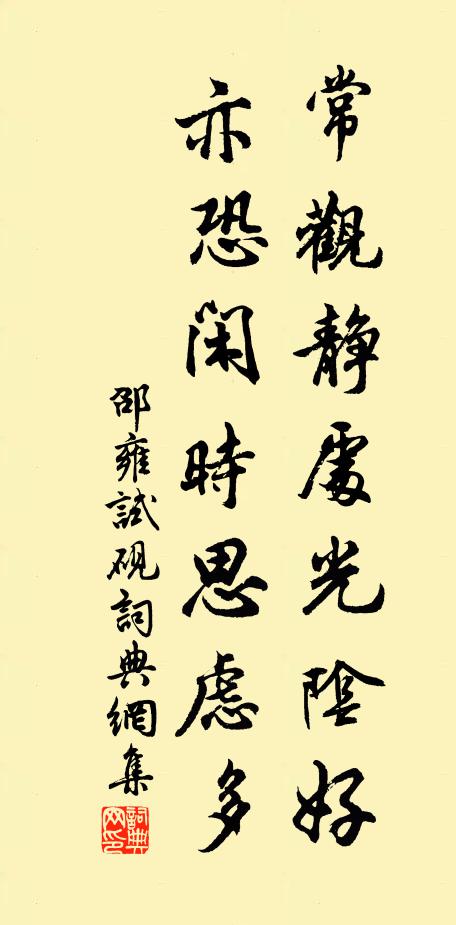 常觀靜處光陰好
亦恐閑時思慮多
邵雍試硯詞典網集
詞典
网印